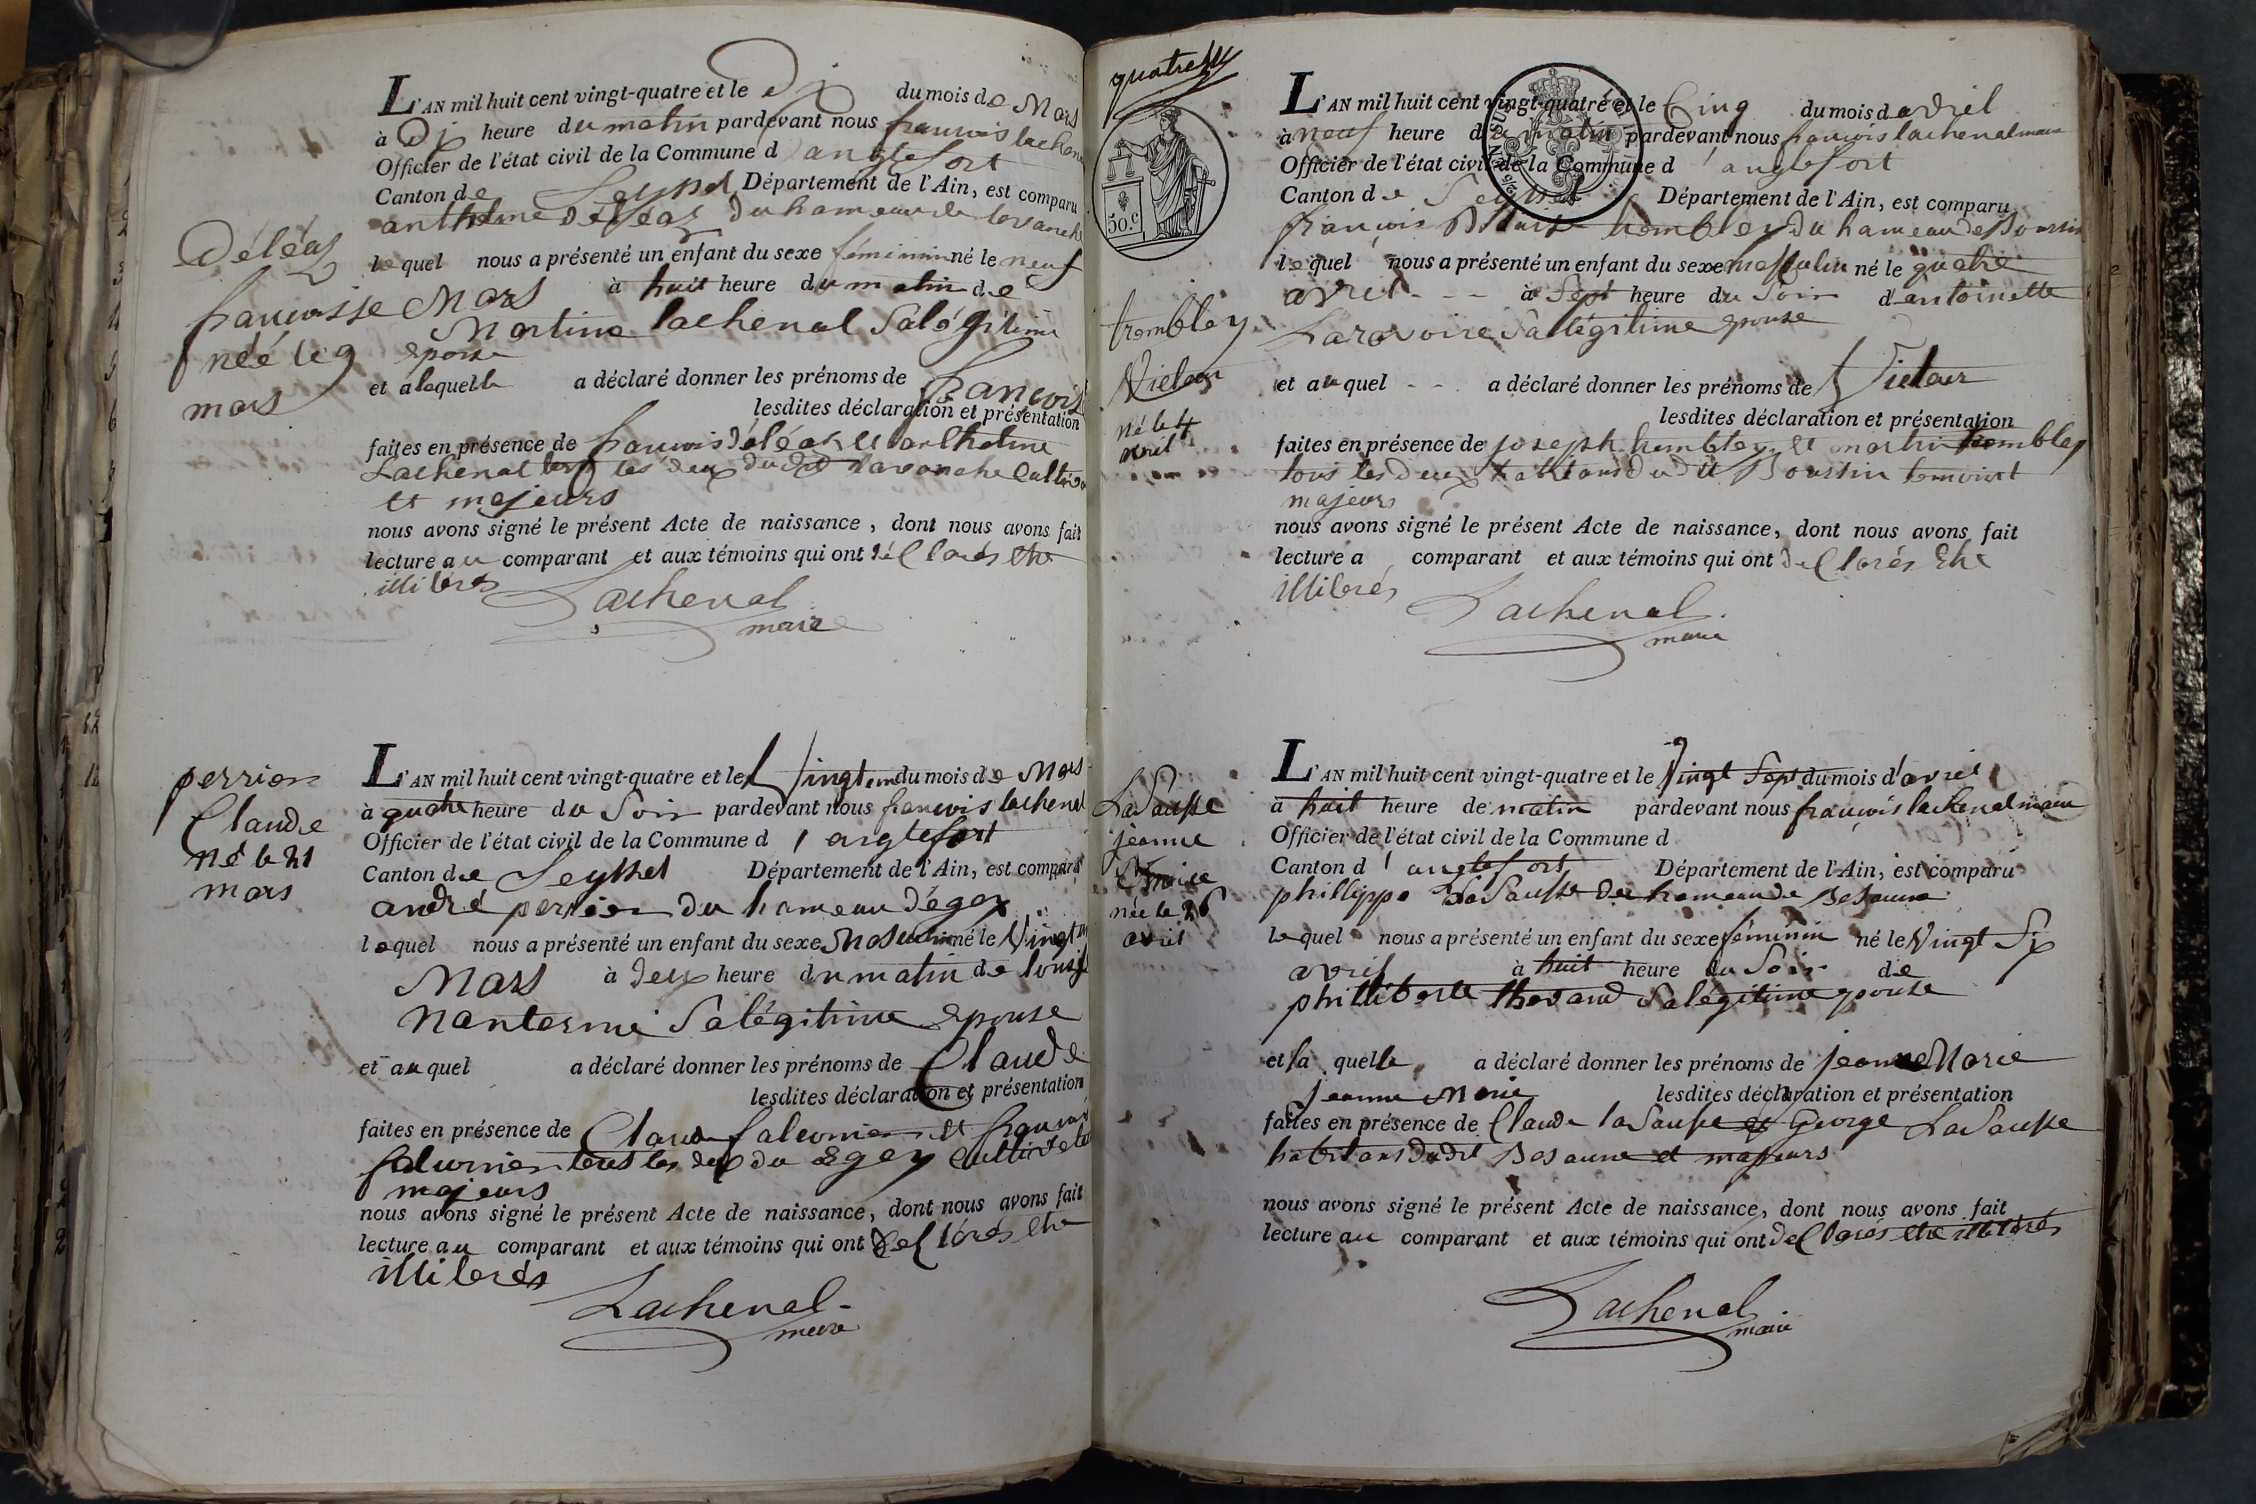 Déléaz
françoisse
néé le 9
mars
L'AN mil huit cent vingt-quatre et le Dix du mois de Mars
à Dix heure du matin pardevant nous françois lachenal
Officier de l'état civil de la Commune d'anglefort
Canton de Seyssel Département de l'Ain, est comparu
anthelme Déléaz du hameau de lavanche
lequel nous a présenté un enfant du sexe féminin né le neuf
Mars à huit heure du matin de
Martine lachenal Sa légitime
epouse
et a laquelle a déclaré donner les prénoms de françoise
lesdites déclaration et présentation
faites en présence de françois Déléaz et anthelme
Lachenal tous les deux dudit lavanche Cultiv
et majeurs
nous avons signé le présent Acte de naissance, dont nous avons fait
lecture au comparant et aux témoins qui ont déclarés etre
illiterés
Lachenal
maire
perrier
Claude
né le 21
mars
L'AN mil huit cent vingt-quatre et le Vingt un du mois de Mars
à quatre heure du Soir pardevant nous françois lachenal
Officier de l'état civil de la Commune d'anglefort
Canton de Seyssel Département de l'Ain, est comparu
andré perrier du hameau d'égex
lequel nous a présenté un enfant du sexe Masculin né le Vingt un
Mars à deux heure du matin de louise
Nantermé Sa légitime epouse
et au quel a déclaré donner les prénoms de Claude
lesdites déclaration et présentation
faites en présence de Claude falconier et françois
falconier tous les deux du egex
majeurs
nous avons signé le présent Acte de naissance, dont nous avons fait
lecture au comparant et aux témoins qui ont declarés etre
illiterés
Lachenal
maire
quatre
50.c
trembley
Victour
né le 4
avril
L'AN mil huit cent vingt-quatre et le Cinq du mois d avril
à neuf heure du matin pardevant nous françois lachenal maire
Officier de l'état civil de la Commune d'anglefort
Canton de Seyssel Département de l'Ain, est comparu
françois trembley du hameau de Boursin
lequel nous a présenté un enfant du sexe masculin né le quatre
avril - - à Sept heure du Soir d'antoinette
Laravoire Sa légitime epouse
et au quel - - a déclaré donner les prénoms de Victour
lesdites déclaration et présentation
faites en présence de joseph trembley et martin trembley
tous les deux habitans dudit Boursin temoins
majeurs
nous avons signé le présent Acte de naissance, dont nous avons fait
lecture a comparant et aux témoins qui ont declarés etre
illiterés
Lachenal
maire
LaSausse
jeanne
née le 26
avril
L'AN mil huit cent vingt-quatre et le Vingt Sept du mois d'avril
à huit heure de matin pardevant nous françois lachenal maire
Officier de l'état civil de la Commune d
Canton d'anglefort Département de l'Ain, est comparu
phillippe LaSausse du hameau de Bosaune
lequel nous a présenté un enfant du sexe féminin né le Vingt Six
avril à huit heure du Soir de
philliberte thovand Sa légitime epouse
et la quelle a déclaré donner les prénoms de jeanne Marie
jeanne Marie lesdites déclaration et présentation
faites en présence de Claude laSausse et George LaSausse
habitans dudit Bosaune et majeurs
nous avons signé le présent Acte de naissance, dont nous avons fait
lecture au comparant et aux témoins qui ont declarés etre illiterés
Lachenal
maire